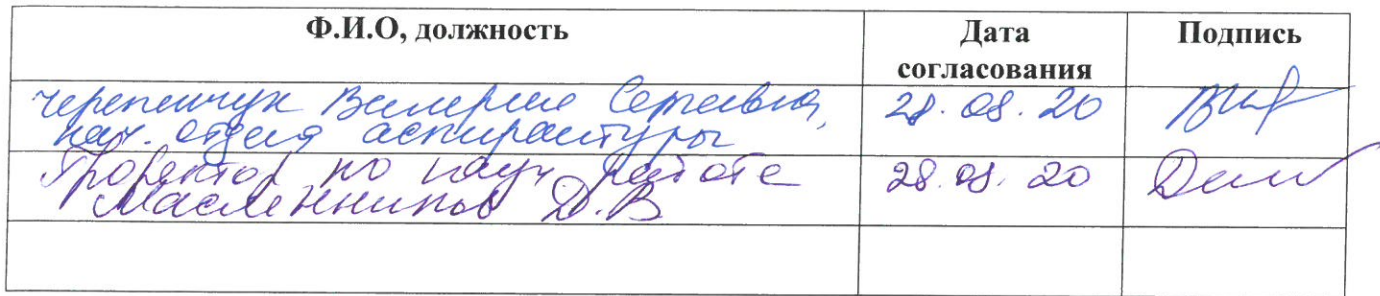 Ф.И.О, должность
Дата согласования
Подпись
Черепенчук Валерия Сергеевна, 28.08.20
нач. отдела аспирантуры
Проректор по науч работе 28.08.20
Масленников Д.В